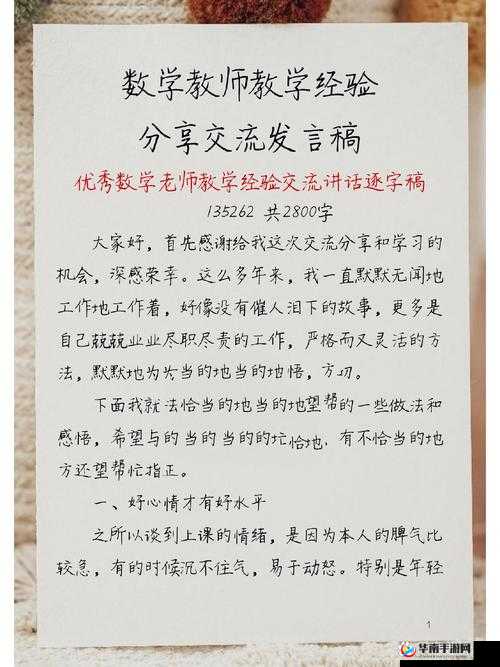 数学教师教学经验
分享交流发言稿
优秀数学老师教学经验交流讲话逐字稿
135262 共2800字
大家好，首先感谢给我这次交流分享和学习的
机会，深感荣幸。这么多年来，我一直默默无闻地
工作地工作着，好像没有催人泪下的故事，更多是
自己兢兢业业尽职尽责的工作，严格而又灵活的方
法，默默地为当的地当的地悟，方切。
下面我就法恰当的地当的地望帮的一些做法和
感悟，希望与的当的当的的忙恰地，有不恰当的地
方还望帮忙指正。
一、好心情才有好水平
之所以谈到上课的情绪，是因为本人的脾气比
较急，有的时候沉不住气，易于动怒。特别是年轻
1
华南手游网